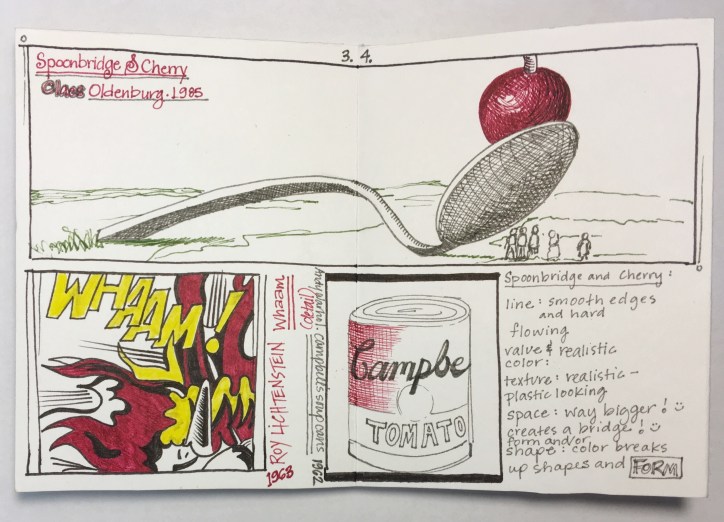 3. 4.
Spoonbridge & Cherry
Claes Oldenburg. 1985
WHAAM!
ROY LICHTENSTEIN Whaam
(detail)
1963
Campbell's soup cans 1962
Campbe
TOMATO
Spoonbridge and Cherry:
line: smooth edges
and hard
flowing
value & realistic
color:
texture: realistic -
plastic looking
space: way bigger!
creates a bridge!
form and/or
shape: color breaks
up shapes and FORM